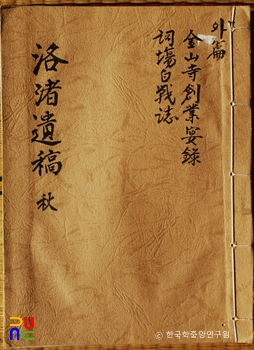 外篇
金山寺創業宴錄
詞場白戰誌
洛渚遺稿 秋
ⓒ 한국학중앙연구원